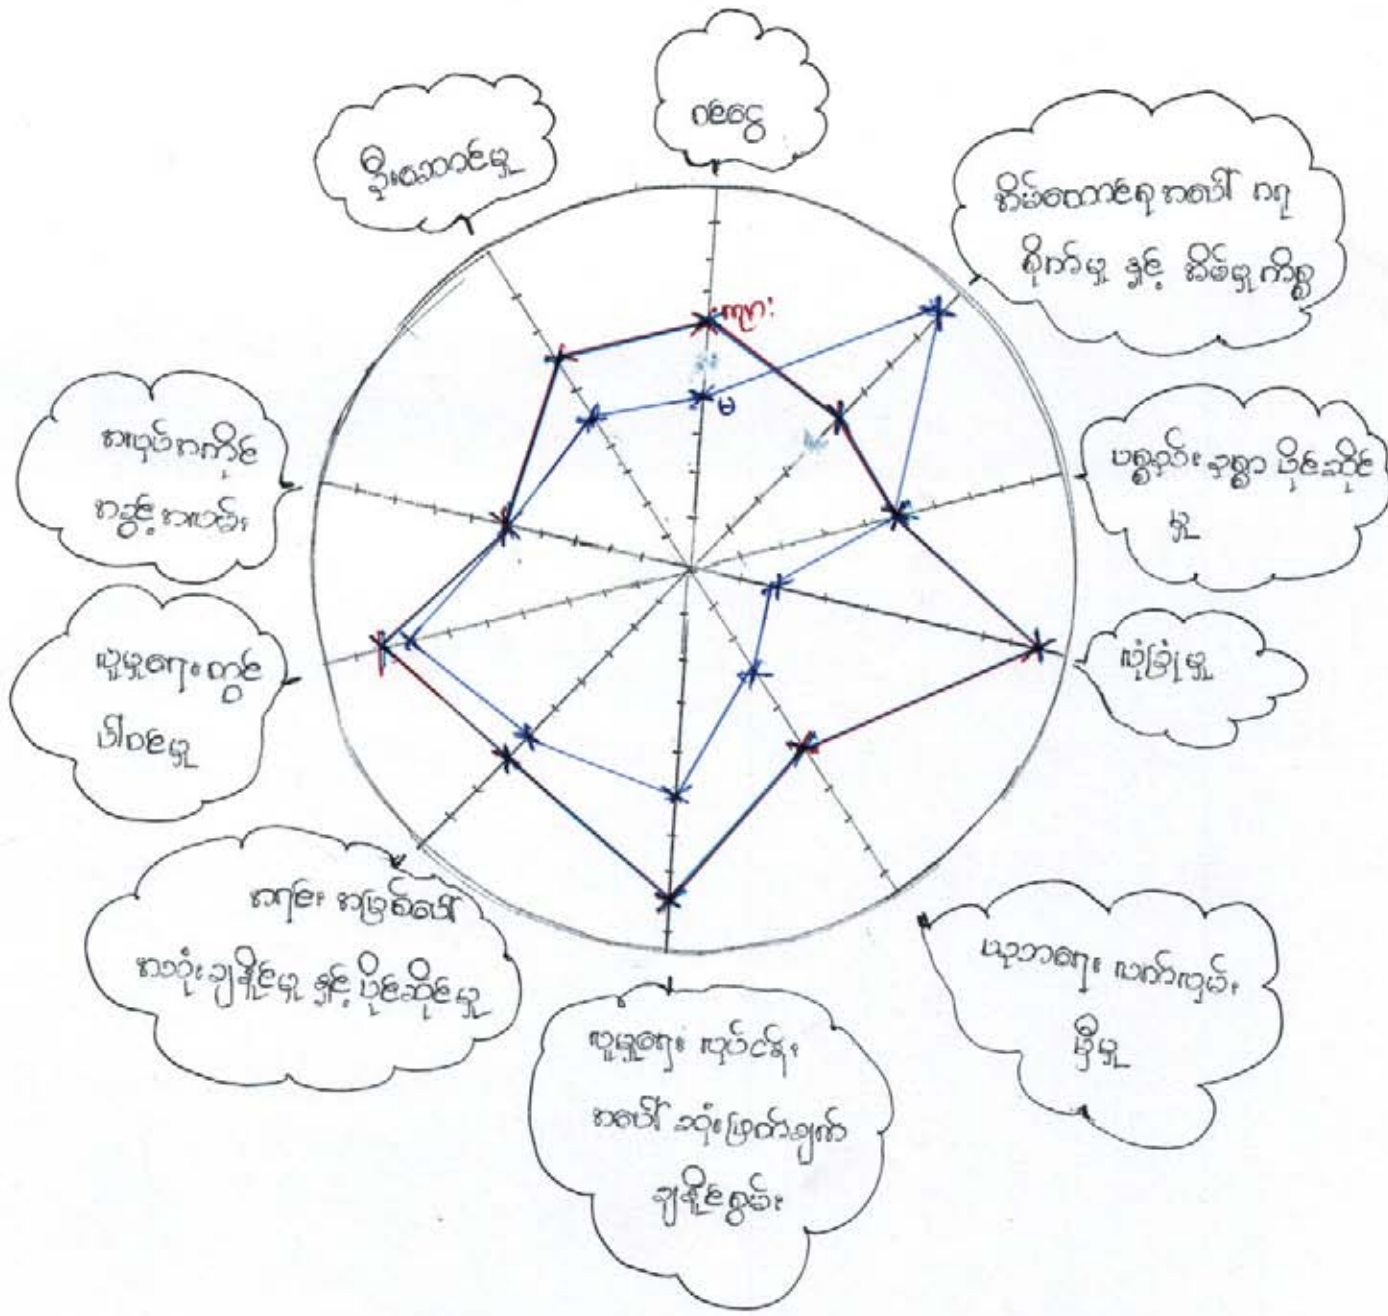 ဝင်ငွေ
အိမ်ထောင်စု အပေါ် ဂရု
စိုက်မှု နှင့် အိမ်မှုကိစ္စ
ပစ္စည်း ဥစ္စာ ပိုင်ဆိုင်
မှု
လုံခြုံမှု
ပညာရေး လက်လှမ်း
မှီမှု
လူမှုရေး လုပ်ငန်း
အပေါ် ဆုံးဖြတ်ချက်
ချနိုင်စွမ်း
အရင်း အမြစ်ပေါ်
အသုံးချနိုင်မှု နှင့် ပိုင်ဆိုင်မှု
လူမှုရေးတွင်
ပါဝင်မှု
အလုပ်အကိုင်
အခွင့်အလမ်း
ဦးဆောင်မှု
ကျား
မ